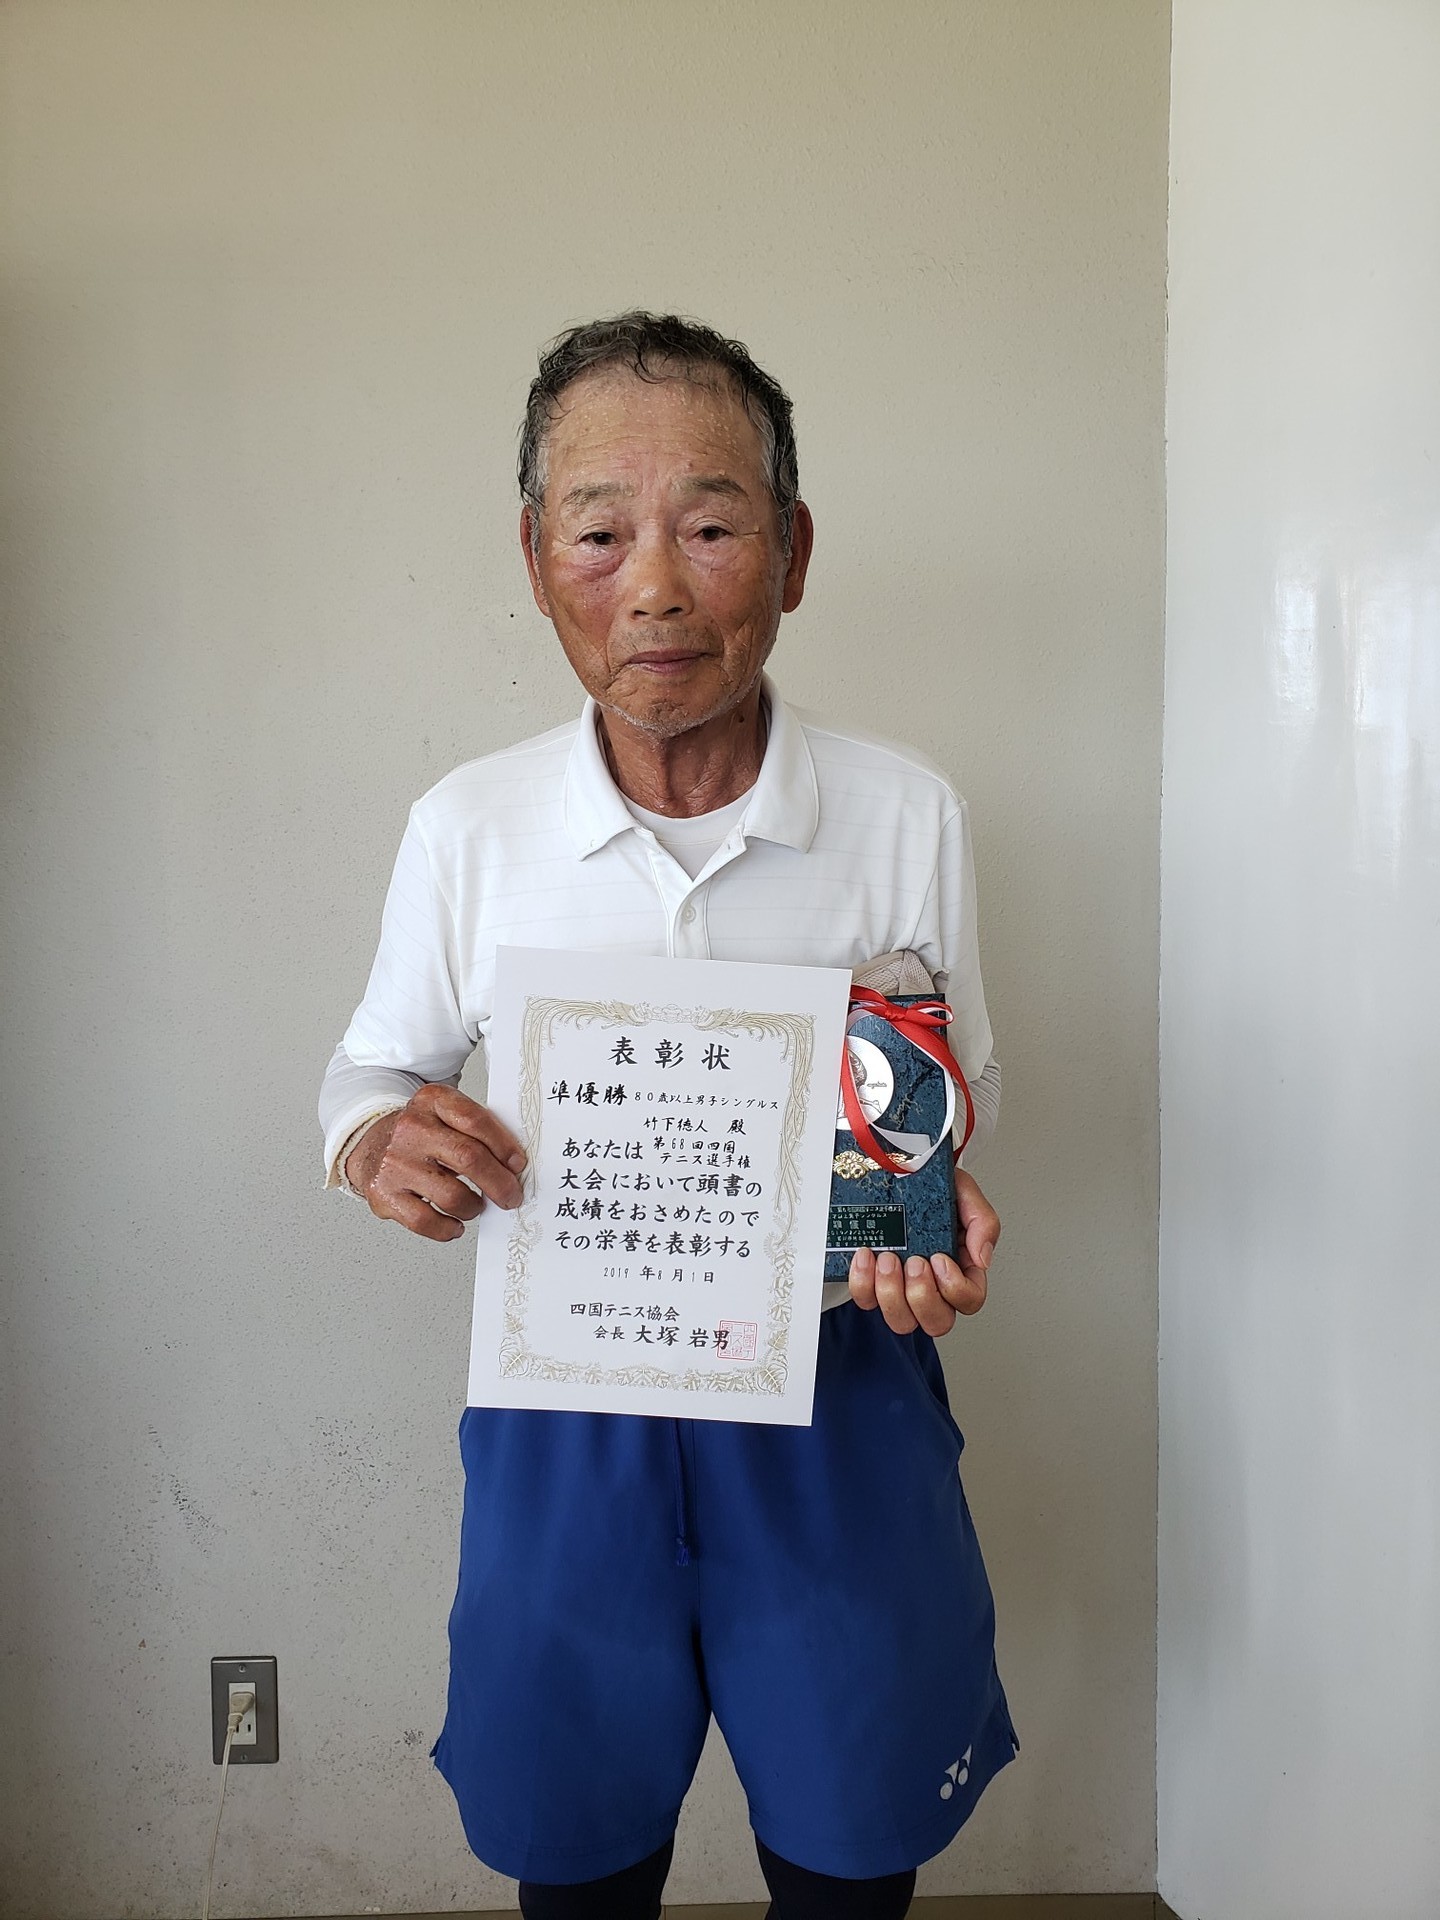 表彰状
準優勝 80歳以上男子シングルス
竹下徳人 殿
あなたは 第68回四国
テニス選手権
大会において頭書の
成績をおさめたので
その栄誉を表彰する
2019 年8月1日
四国テニス協会
会長 大塚 岩男
準優勝